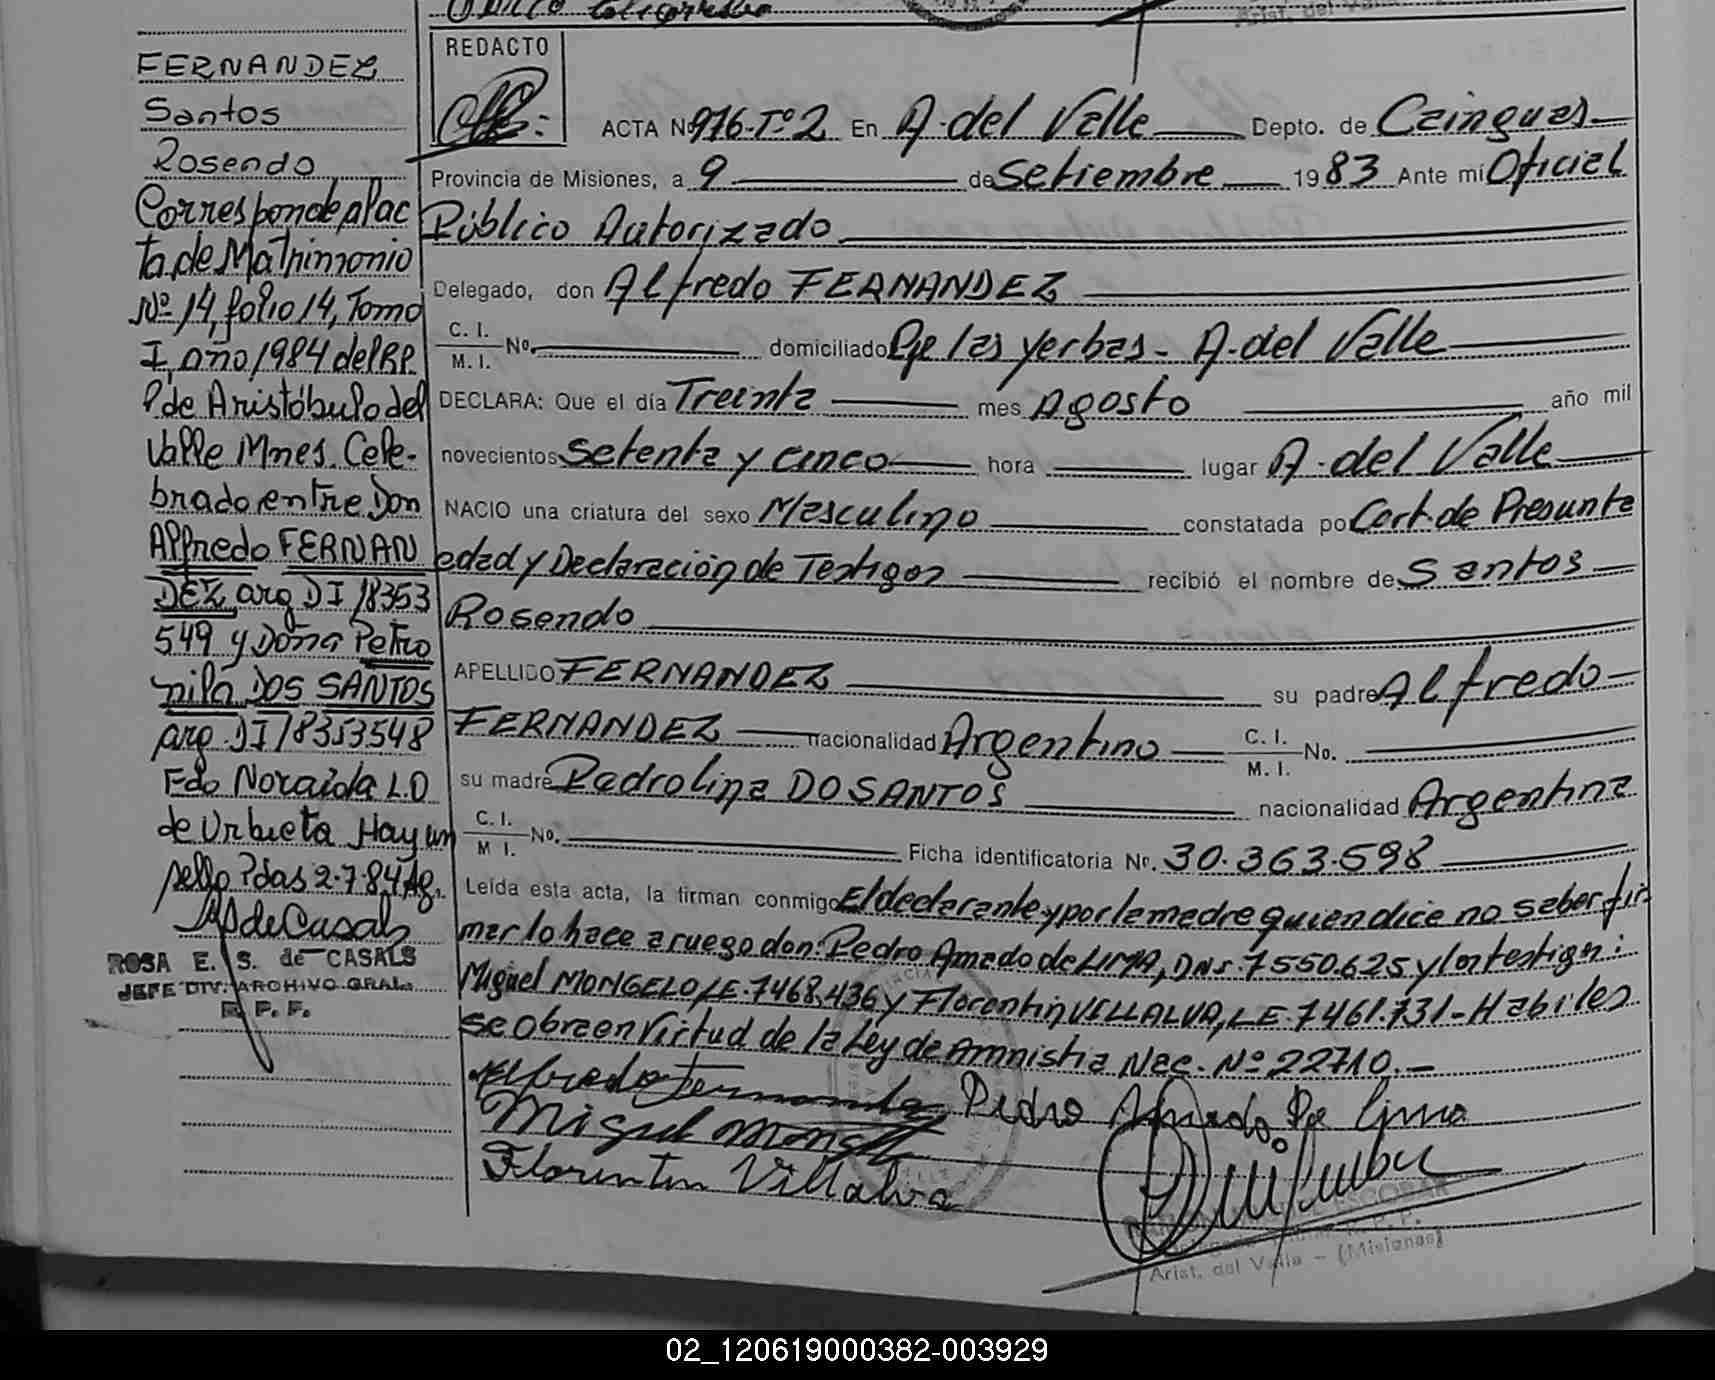 FERNANDEZ
Santos
Rosendo
Corresponde al ac
ta de Matrimonio
Nº 14, folio 14, Tomo
I, año 1984 del RP.
P de Aristóbulo del
Valle Mnes. Cele-
brado entre Don
Alfredo FERNAN
DEZ arg DI 18353
549 y Doña Petro
nila DOS SANTOS
arg. DI 18353548
Fdo Noraida L.D
de Urbieta Hay un
sello Pdas 2.7.84 Ag.
ROSA E. S. de CASALS
JEFE DIV. ARCHIVO GRAL.
R. P. P.
REDACTO
ACTA Nº 976-Tº2 En A. del Valle Depto. de Cainguas
Provincia de Misiones, a 9 de Setiembre 1983 Ante mi Oficial
Público Autorizado
Delegado, don Alfredo FERNANDEZ
C. I. M. I. No. domiciliado Pje las yerbas - A. del Valle
DECLARA: Que el día Treinta mes Agosto año mil
novecientos setenta y cinco hora lugar A. del Valle
NACIO una criatura del sexo Masculino constatada por Cert. de Presunta
edad y Declaración de Testigos recibió el nombre de Santos
Rosendo
APELLIDO FERNANDEZ su padre Alfredo
FERNANDEZ nacionalidad Argentino C. I. M. I. No.
su madre Pedrolina DO SANTOS nacionalidad Argentina
C. I. M I. No. Ficha identificatoria Nº. 30.363.598
Leída esta acta, la firman conmigo El declarante y por la madre quien dice no saber fir
mar lo hace a ruego don: Pedro Amado de LIMA, DNI. 7550.625 y los testigos:
Miguel MONGELO LE. 7468.436 y Florentin VILLALVA, LE. 7461.731 - Habiles
se obra en Virtud de la Ley de Amnistia Nac. Nº 22710.-
Alfredo Fernandez Pedro Amado De Lima
Miguel Mongelo
Florentin Villalva
ESCOBAR
Arist. del Valle - (Misiones)
02_120619000382-003929